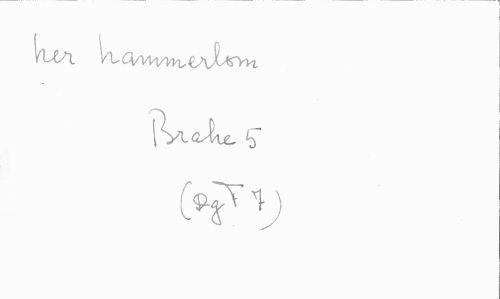 her hammerlom
Brahe 5
(DgF 7)